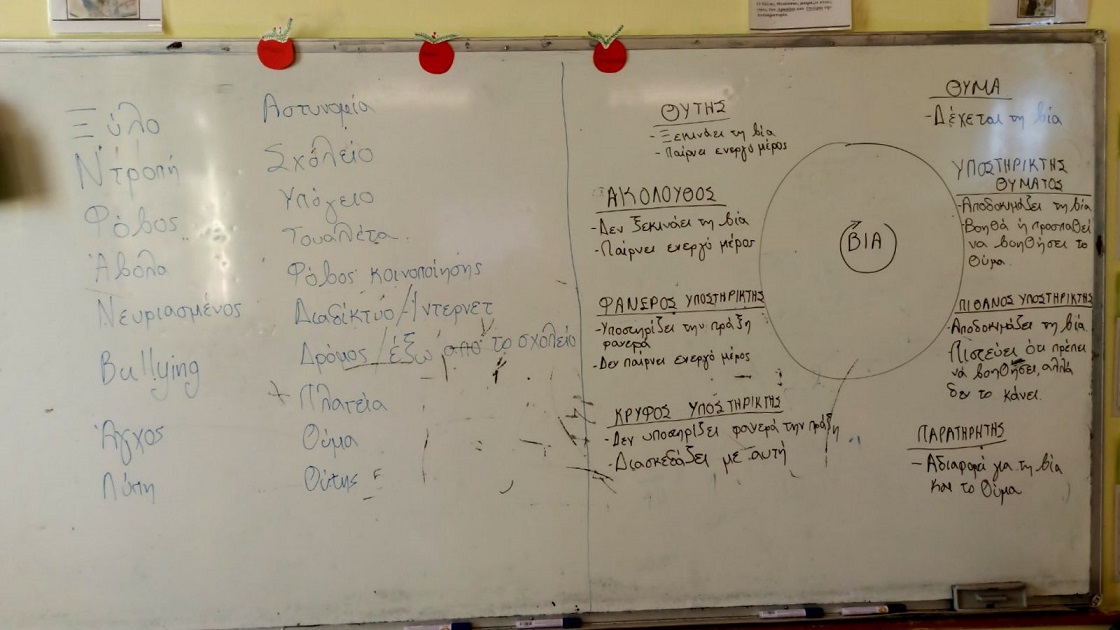 Ξύλο
Ντροπή
Φόβος
Άβολα
Νευριασμένος
Bullying
Άγχος
Λύπη
Αστυνομία
Σχόλειο
Υπόγειο
Τουαλέτα
Φόβος κοινοποίησης
Διαδίκτυο/Ίντερνετ
Δρόμος/έξω από το σχόλειο
Πλατεία
Θύμα
Θύτης
ΘΥΤΗΣ
- Ξεκινάει τη βία
- Παίρνει ενεργό μέρος
ΑΚΟΛΟΥΘΟΣ
- Δεν ξεκινάει τη βία
- Παίρνει ενεργό μέρος
ΦΑΝΕΡΟΣ ΥΠΟΣΤΗΡΙΚΤΗΣ
- Υποστηρίζει την πράξη
φανερά
- Δεν παίρνει ενεργό μέρος
ΚΡΥΦΟΣ ΥΠΟΣΤΗΡΙΚΤΗΣ
- Δεν υποστηρίζει φανερά την πράξη
- Διασκεδάζει με αυτή
ΒΙΑ
ΘΥΜΑ
- Δέχεται τη βία
ΥΠΟΣΤΗΡΙΚΤΗΣ
ΘΥΜΑΤΟΣ
- Αποδοκιμάζει τη βία
- Βοηθά ή προσπαθεί
να βοηθήσει το
Θύμα
ΠΙΘΑΝΟΣ ΥΠΟΣΤΗΡΙΚΤΗΣ
- Αποδοκιμάζει τη βία.
Πιστεύει ότι πρέπει
να βοηθήσει, αλλά
δεν το κάνει.
ΠΑΡΑΤΗΡΗΤΗΣ
- Αδιαφορεί για τη βία
και το Θύμα